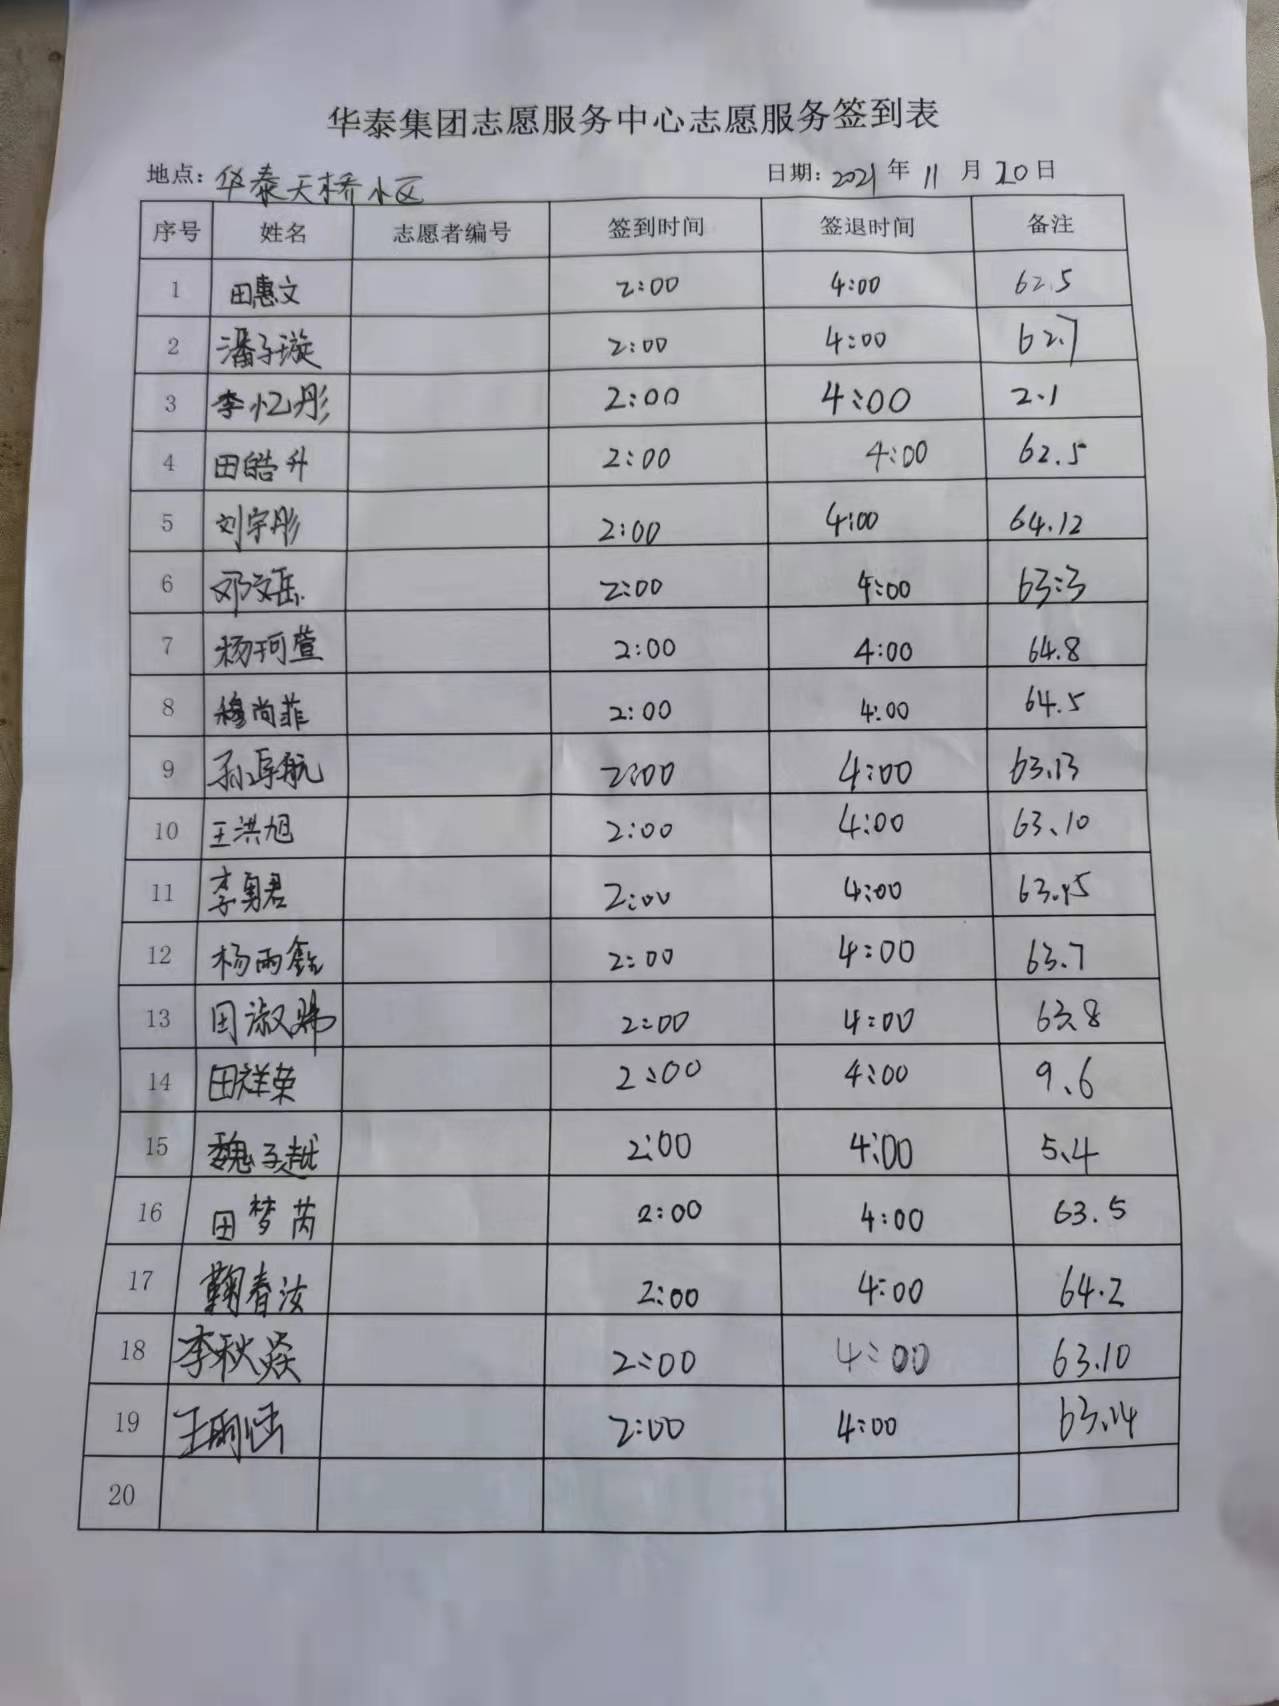 华泰集团志愿服务中心志愿服务签到表
地点：华泰天桥小区 日期：2021年11月20日
序号 姓名 志愿者编号 签到时间 签退时间 备注
1 田惠文 2:00 4:00 62.5
2 潘子璇 2:00 4:00 62.7
3 李忆彤 2:00 4:00 2.1
4 田皓升 2:00 4:00 62.5
5 刘宇彤 2:00 4:00 64.12
6 邓文岳 2:00 4:00 63:3
7 杨珂萱 2:00 4:00 64.8
8 穆尚菲 2:00 4:00 64.5
9 2:00 4:00 63.13
10 王洪旭 2:00 4:00 63、10
11 李勇君 2:00 4:00
12 2:00 4:00 63、7
13 2:00 4:00 63、8
14 田祥荣 2:00 4:00 9、6
15 魏子越 2:00 4:00 5、4
16 田梦芮 2:00 4:00 63.5
17 鞠春汝 2:00 4:00 64.2
18 李秋焱 2:00 4:00 63.10
19 王雨涵 2:00 4:00 63.14
20